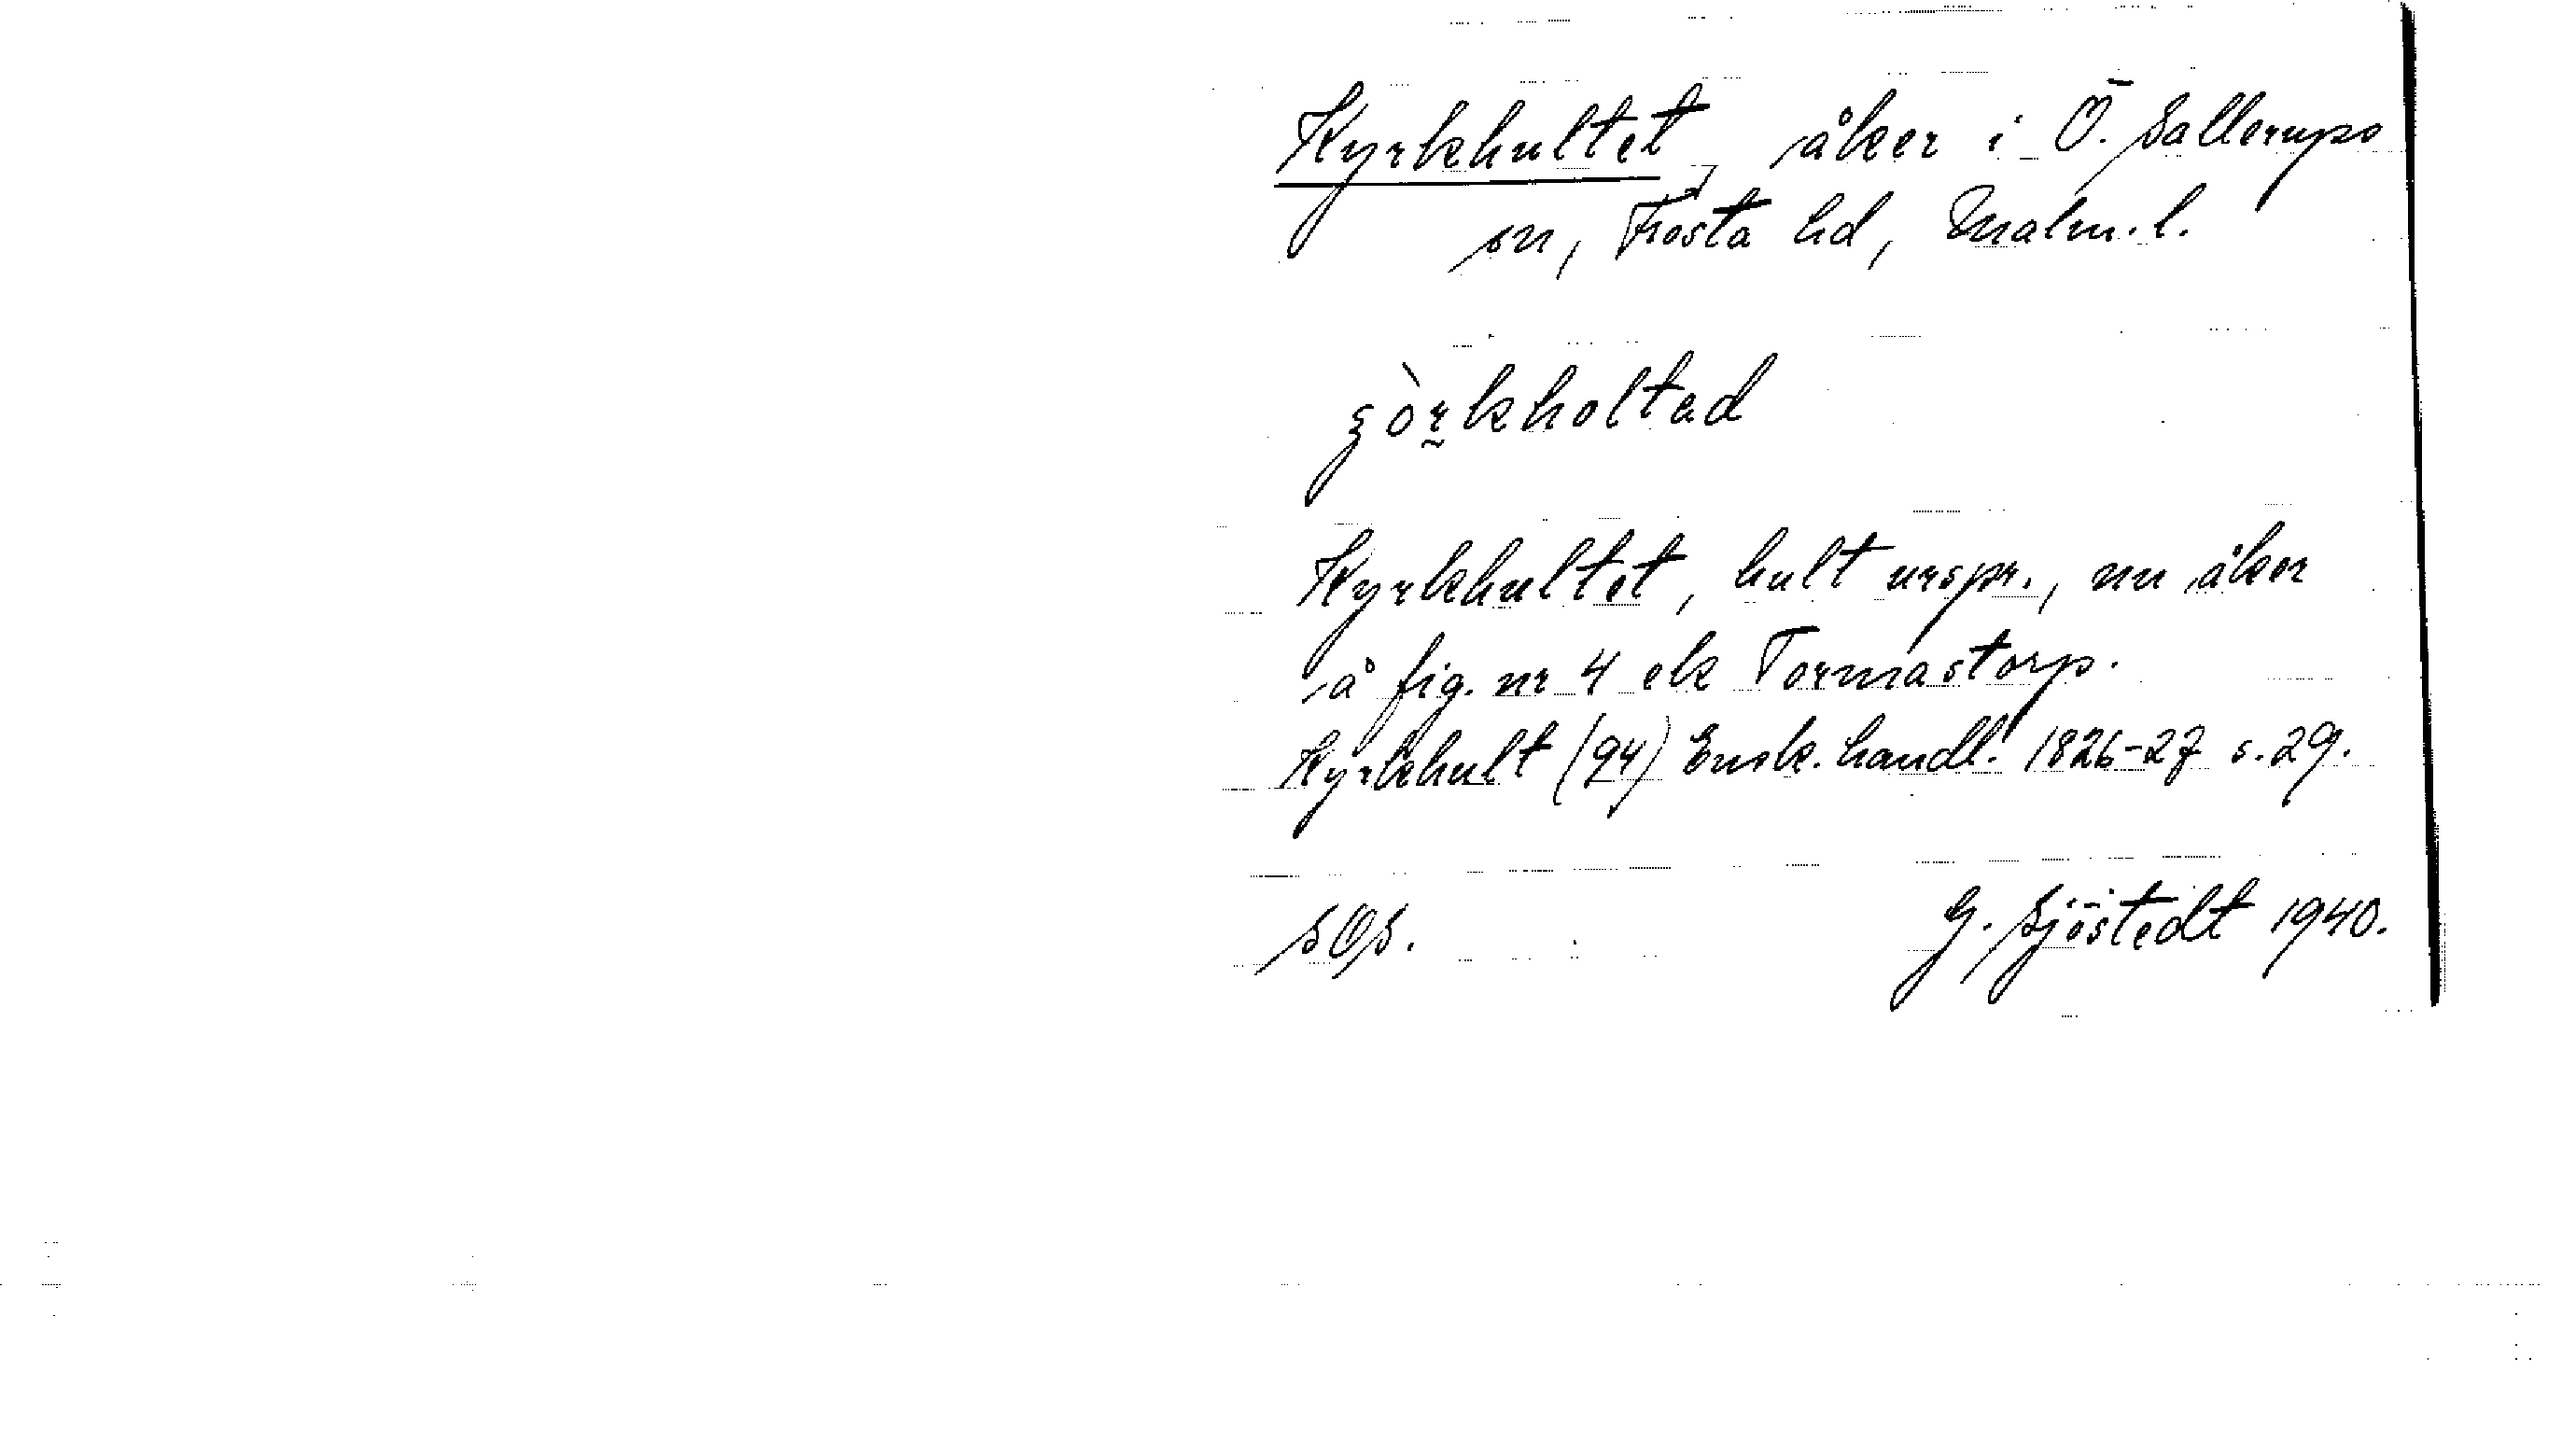 Kyrkhultet, åker i Ö. Sallerups
sn, Frosta hd, Malm. l.
Kyrkhultet, hult urspr., nu åker
å fig. nr 4 ek Tormastorp.
Kyrkhult (94) Ensk. handl. 1826-27 s. 29.
SOS. G. Sjöstedt 1940.